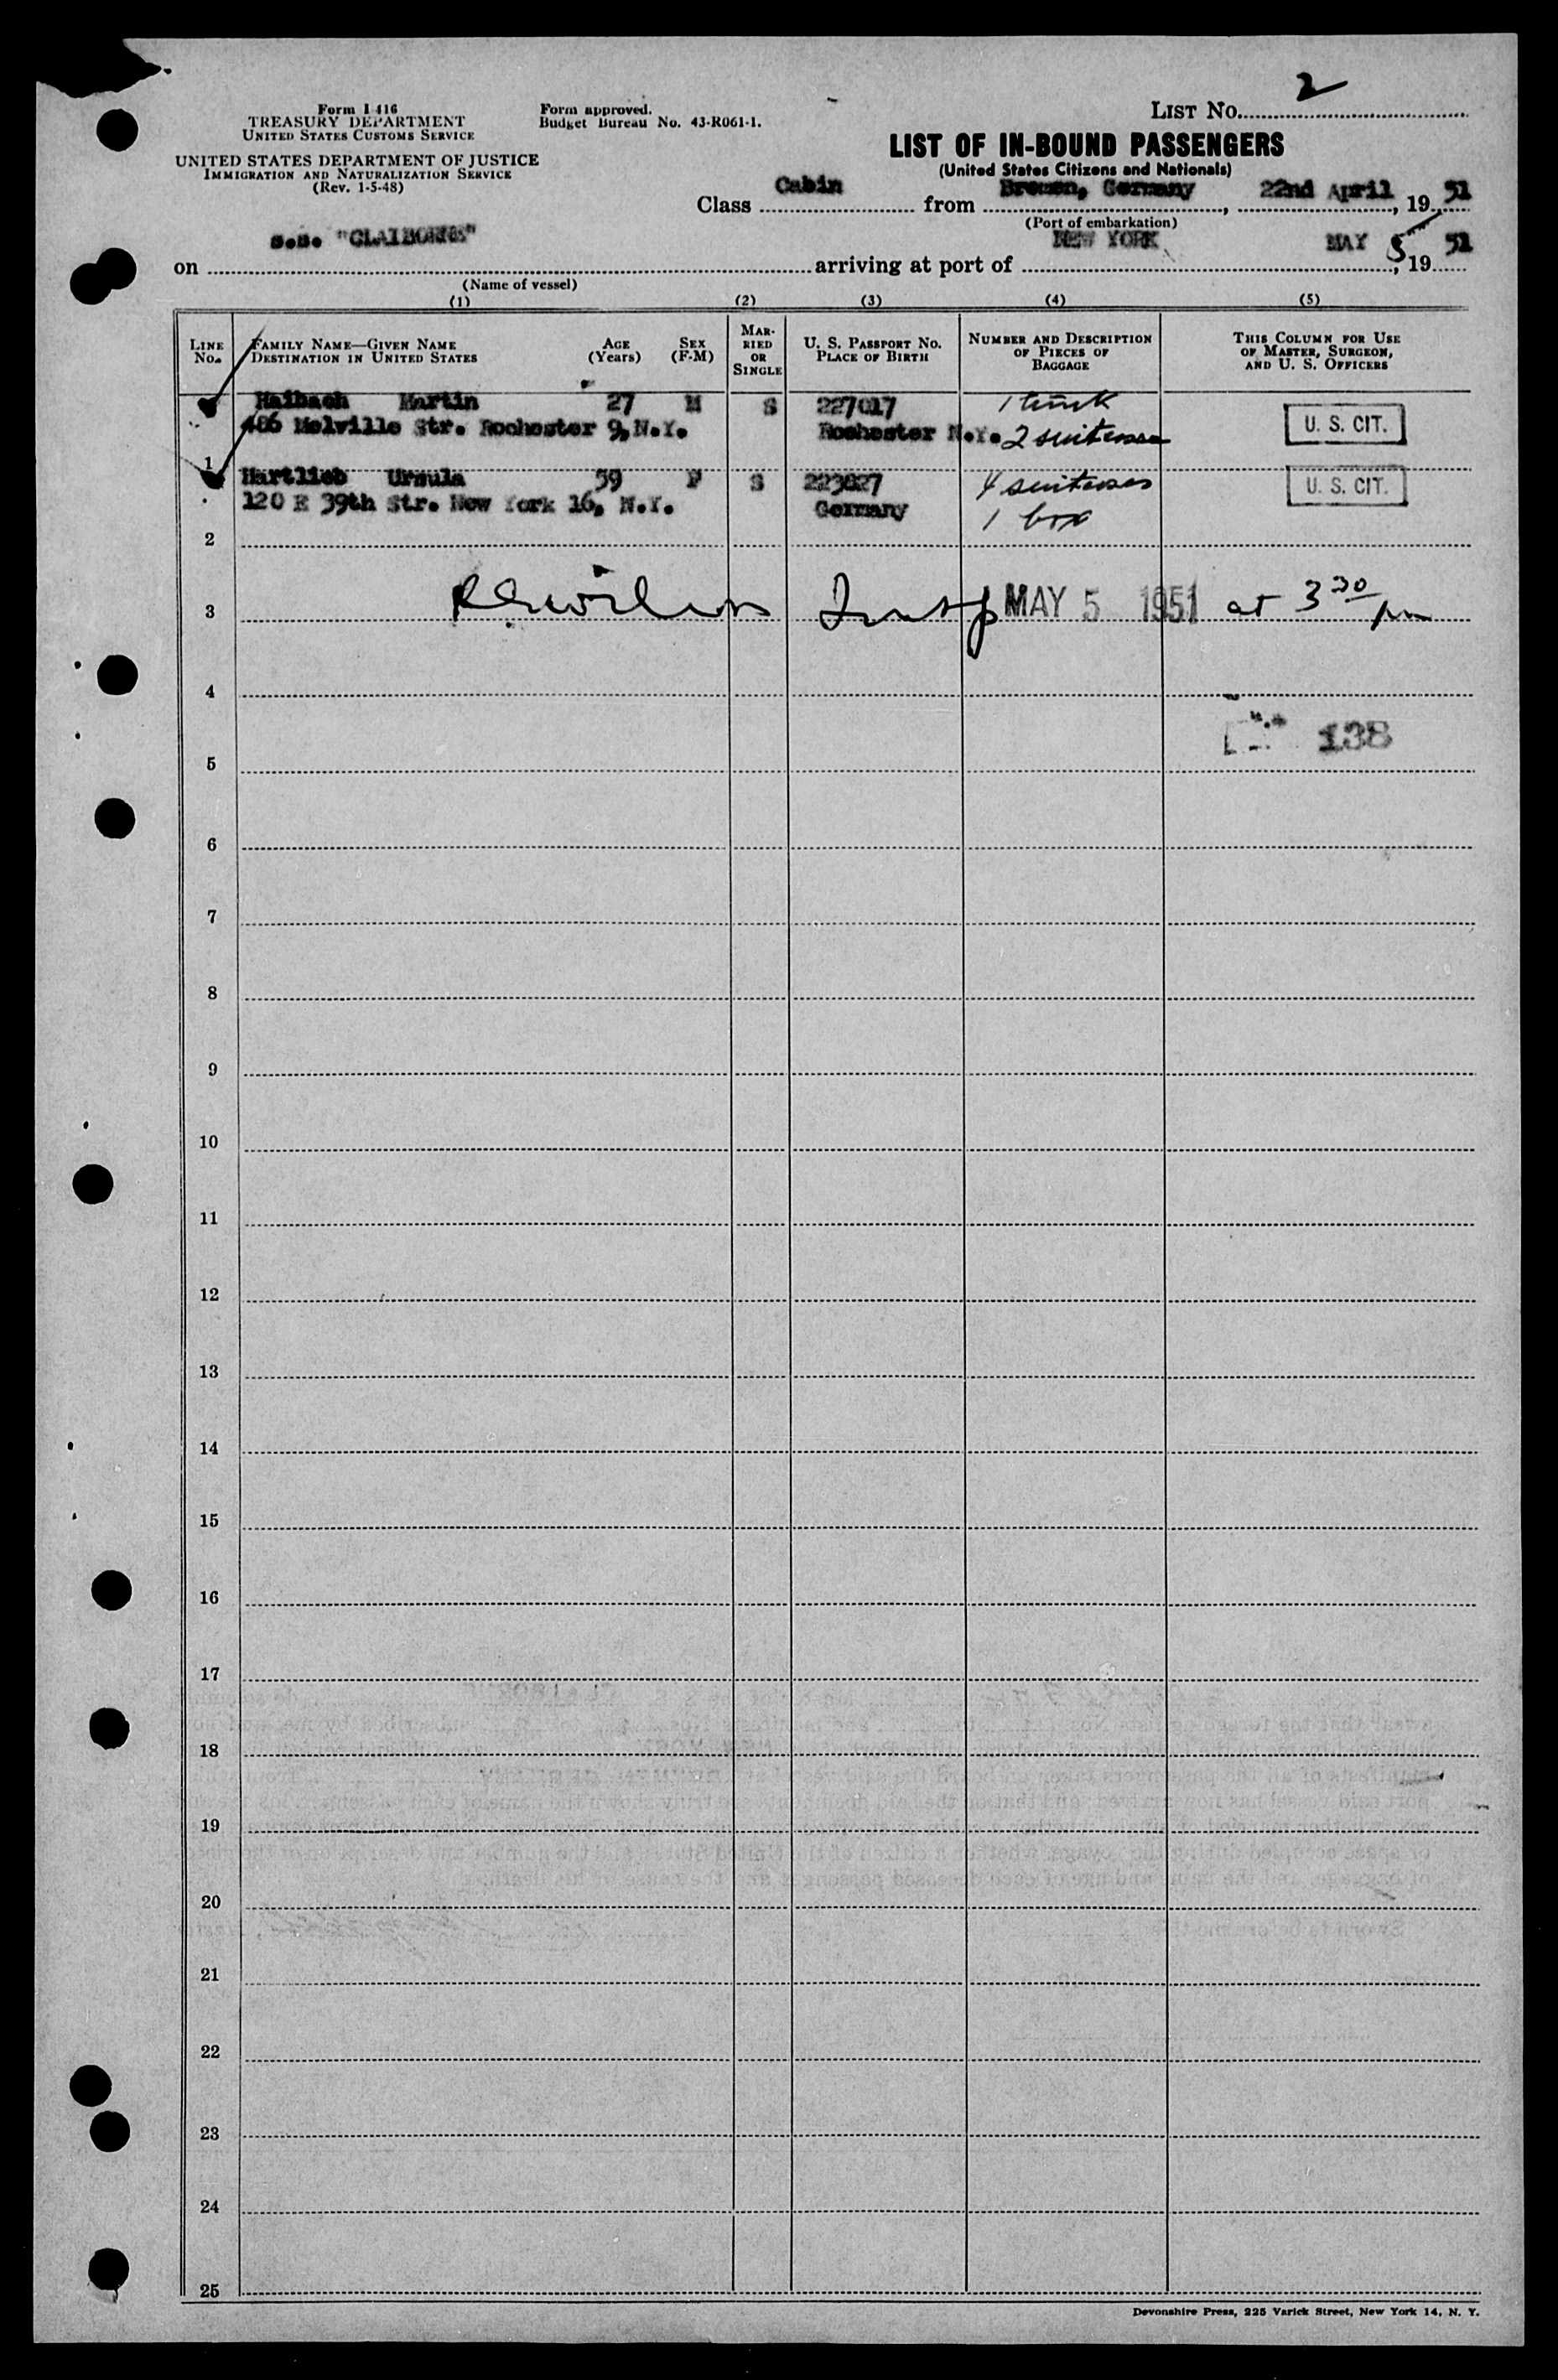 2
LIST No.
Form I 416
TREASURY DEPARTMENT
UNITED STATES CUSTOMS SERVICE
Form approved.
Budget Bureau No. 43-R061-1.
UNITED STATES DEPARTMENT OF JUSTICE
IMMIGRATION AND NATURALIZATION SERVICE
(Rev. 1-5-48)
LIST OF IN-BOUND PASSENGERS
(United States Citizens and Nationals)
Class Cabin from Bremen, Germany, 22nd April, 19 51
(Port of embarkation)
on s.s. "CLAIBORNE" arriving at port of NEW YORK MAY 5, 19 51
(Name of vessel)
(1) (2) (3) (4) (5)
LINE No. FAMILY NAME—GIVEN NAME DESTINATION IN UNITED STATES AGE (Years) SEX (F-M) MARRIED OR SINGLE U. S. PASSPORT NO. PLACE OF BIRTH NUMBER AND DESCRIPTION OF PIECES OF BAGGAGE THIS COLUMN FOR USE OF MASTER, SURGEON, AND U. S. OFFICERS
Haibach Martin 27 M S 227017 1 trunk U. S. CIT.
486 Melville Str. Rochester 9, N.Y. Rochester N.Y. 2 suitcases
1
Hartlieb Ursula 59 F S 223027 4 suitcases U. S. CIT.
120 E 39th Str. New York 16, N.Y. Germany 1 box
2
3 Insp MAY 5 1951 at 3 30 pm
4
138
5
6
7
8
9
10
11
12
13
14
15
16
17
18
19
20
21
22
23
24
25
Devonshire Press, 225 Varick Street, New York 14, N. Y.